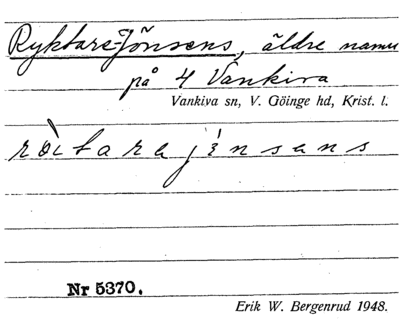 Ryktare Jönsens, äldre namn
på 4 Vankiva
Vankiva sn, V. Göinge hd, Krist. l.
Nr 5370.
Erik W. Bergenrud 1948.